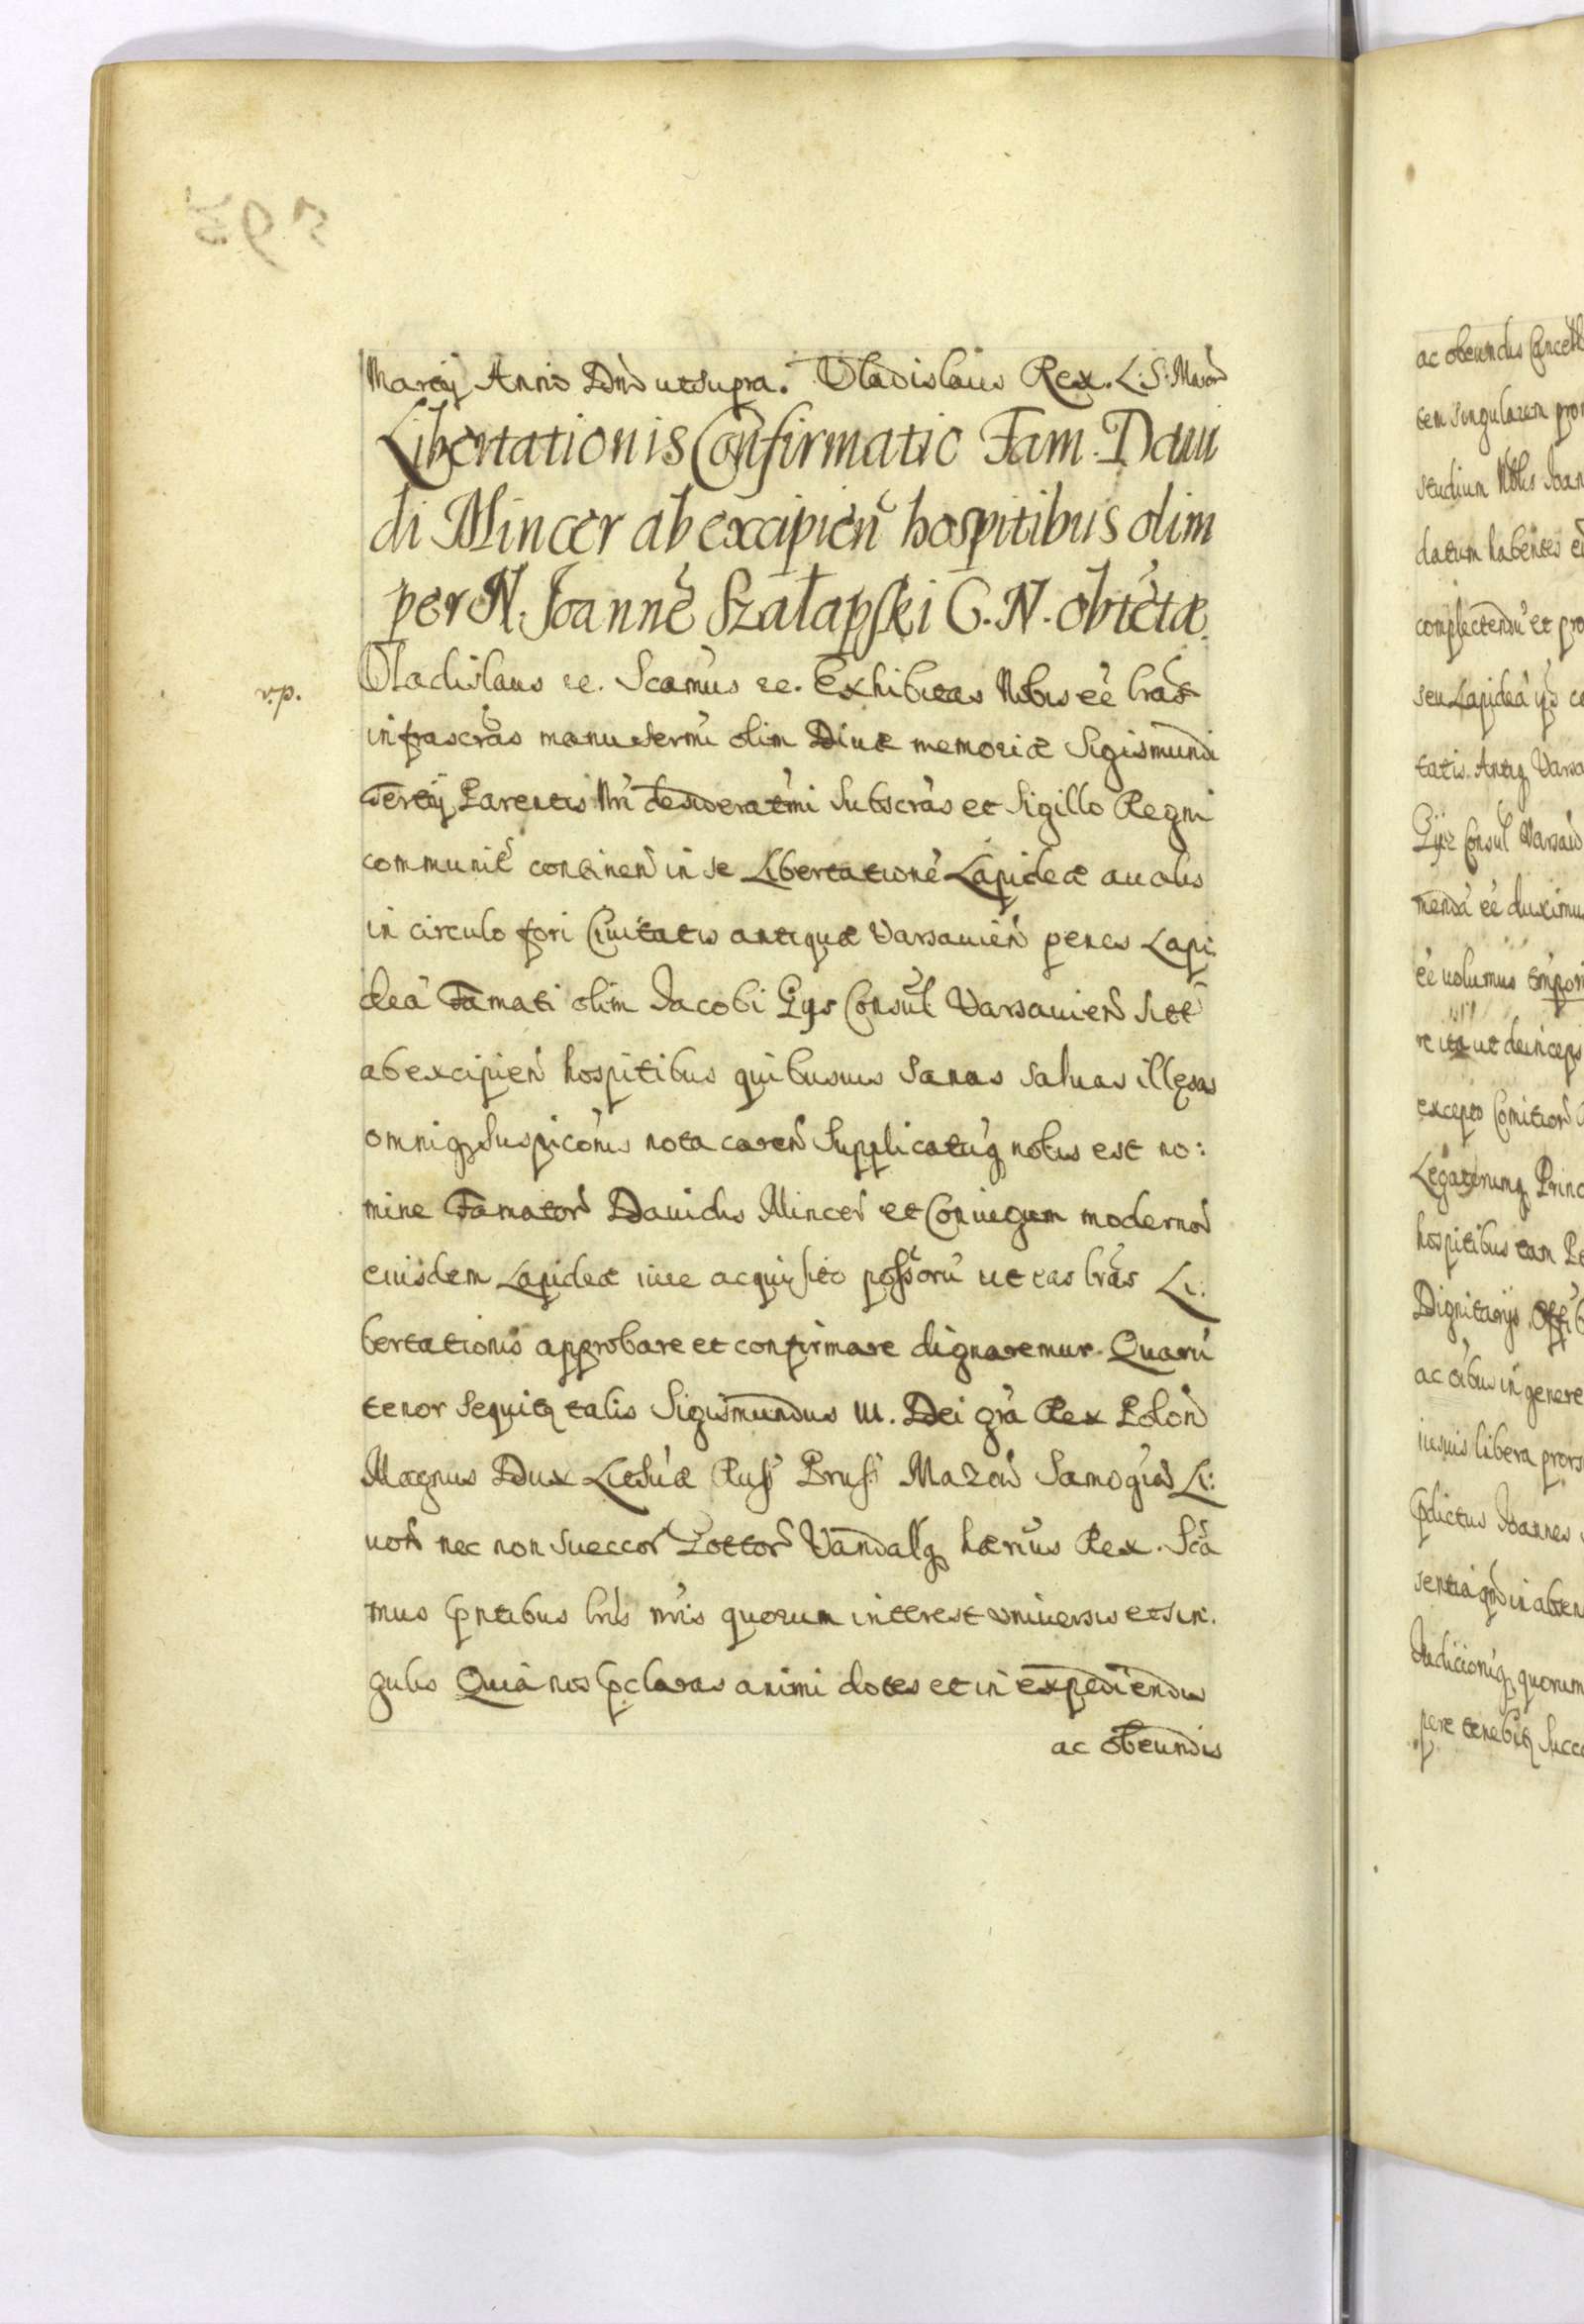 Martij Anno Dni ut supra. Vladislaus Rex. L: S: Maior
Libertationis Confirmatio Fam. Daui
di Mincer ab excipien hospitibus olim
per N. Joanne Szałapski C. N. obtetæ
v.p.
Vladislaus re. Scamus re. Exhibitas Nobis eē lrās
infrascrās manu Sermi olim Diuæ memoriæ Sigismundi
Tertij Parentis Nrī desideratmi Subscrās et Sigillo Regni
communit continen in se Libertatione Lapideæ aualis
in circulo fori Ciuitatis antiquæ Varsauien penes Lapi:
dea Famati olim Jacobi Gys Consul Varsauien sitt
ab excipien hospitibus quibusuis sanas saluas illęsas
omniq suspicōnis nota caren Supplicatuq nobis est no:
mine Famator Dauidis Mincer et Coniugum modernor
eiusdem Lapideæ iure acquisito possorū ut eas lrās Li:
bertationis approbare et confirmare dignaremur. Quarū
tenor sequitq talis Sigismundus III. Dei grā Rex Polon
Magnus Dux Lithuæ Russ Pruss Mazou Samogiæ Li:
uon nec non Sueccor Gottor Vandalq hærius Rex. Scā
mus pntibus lrīs nrīs quorum interest vniuersis et sin:
gulis Quia nos pclaras animi dotes et in expediendis
ac obeundis
ac obeundis
tem singularem
studium Nobis Joan
datum habentes
complectendū et
seu Lapidea
tatis Antiq
Consul
menda eē duximus
eē uolumus
re ita ut deinceps
excepto Comitior
Legatorumq Princ
hospitibus tam
Dignitarijs
ac oībus in genere
iusuis libera prors
pdictus Joannes
sentia qnd in absen
Judicioniq quorum
pere tenebitq Succ